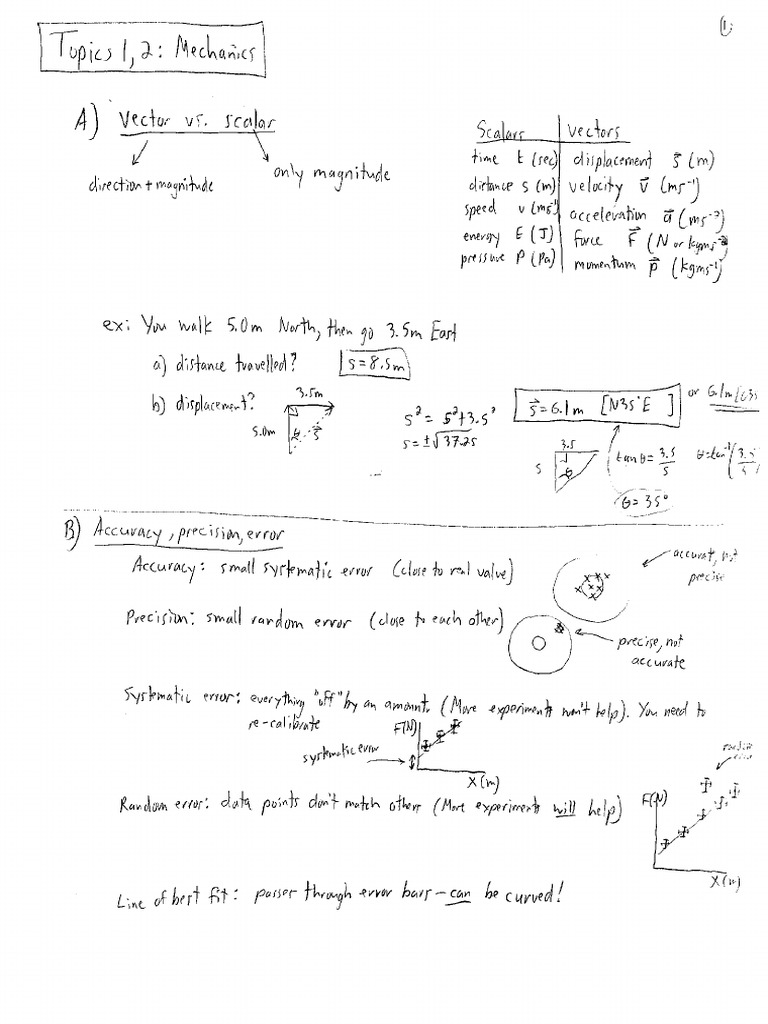 ①
Topics 1, 2: Mechanics
A) Vector vs. scalar
direction + magnitude
only magnitude
Scalars | Vectors
time t (sec) | displacement s⃗ (m)
distance s (m) | velocity v⃗ (ms⁻¹)
speed v (ms⁻¹) | acceleration a⃗ (ms⁻²)
energy E (J) | force F⃗ (N or kgms⁻²)
pressure P (Pa) | momentum p⃗ (kgms⁻¹)
ex: You walk 5.0m North, then go 3.5m East
a) distance travelled? s = 8.5m
b) displacement?
3.5m
5.0m
θ s⃗
s² = 5² + 3.5²
s = ±√37.25
s⃗ = 6.1m [N35°E ] or 6.1m
3.5
5
θ
tanθ = 3.5/5
θ = tan⁻¹(3.5/5
θ = 35°
B) Accuracy, precision, error
Accuracy: small systematic error (close to real value)
accurat, not
precise
Precision: small random error (close to each other)
precise, not
accurate
Systematic error: everything "off" by an amount. (More experiments won't help). You need to
re-calibrate
F(N)
systematic error
X(m)
random
error
Random error: data points don't match others (More experiments will help)
F(N)
X(m)
Line of best fit: passes through error bars - can be curved!